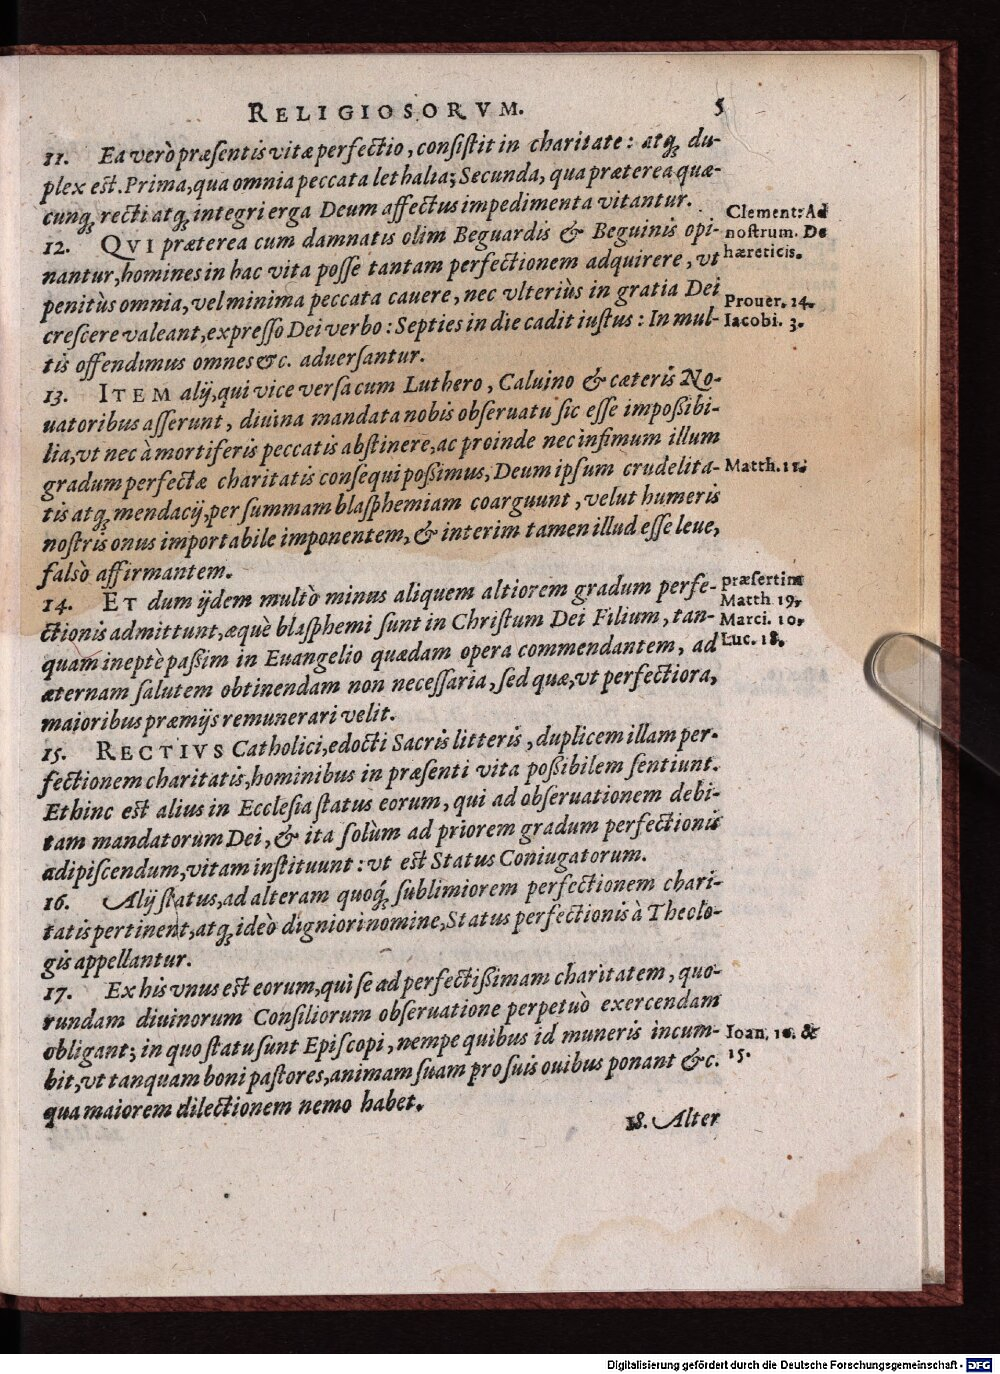 RELIGIOSORVM. 5
11. Ea verò præsentis vitæ perfectio, consistit in charitate: atq; du-
plex est. Prima, qua omnia peccata lethalia; Secunda, qua præterea quæ-
cunq; recti atq; integri erga Deum affectus impedimenta vitantur.
12. QVI præterea cum damnatis olim Beguardis & Beguinis opi-
nantur, homines in hac vita posse tantam perfectionem adquirere, vt
penitùs omnia, vel minima peccata cauere, nec vlteriùs in gratia Dei
crescere valeant, expresso Dei verbo: Septies in die cadit iustus: In mul-
tis offendimus omnes &c. aduersantur.
Clement: Ad
nostrum. De
hæreticis.
Prouer. 14.
Iacobi. 3.
13. ITEM alij, qui vice versa cum Luthero, Caluino & cæteris No-
uatoribus asserunt, diuina mandata nobis obseruatu sic esse impoßibi-
lia, vt nec à mortiferis peccatis abstinere, ac proinde nec infimum illum
gradum perfectæ charitatis consequi poßimus, Deum ipsum crudelita-
tis atq; mendacij, per summam blasphemiam coarguunt, velut humeris
nostris onus importabile imponentem, & interim tamen illud esse leue,
falsò affirmantem.
Matth. 11.
14. ET dum ijdem multò minus aliquem altiorem gradum perfe-
ctionis admittunt, æquè blasphemi sunt in Christum Dei Filium, tan-
quam ineptè paßim in Euangelio quædam opera commendantem, ad
æternam salutem obtinendam non necessaria, sed quæ, vt perfectiora,
maioribus præmijs remunerari velit.
præsertim
Matth 19.
Marci. 10.
Luc. 18.
15. RECTIVS Catholici, edocti Sacris litteris, duplicem illam per-
fectionem charitatis, hominibus in præsenti vita poßibilem sentiunt.
Et hinc est alius in Ecclesia status eorum, qui ad obseruationem debi-
tam mandatorum Dei, & ita solùm ad priorem gradum perfectionis
adipiscendum, vitam instituunt: vt est Status Coniugatorum.
16. Alij status, ad alteram quoq; sublimiorem perfectionem chari-
tatis pertinent, atq; ideò digniori nomine, Status perfectionis à Theolo-
gis appellantur.
17. Ex his vnus est eorum, qui se ad perfectißimam charitatem, quo-
rundam diuinorum Consiliorum obseruatione perpetuò exercendam
obligant; in quo statu sunt Episcopi, nempe quibus id muneris incum-
bit, vt tanquam boni pastores, animam suam pro suis ouibus ponant &c.
qua maiorem dilectionem nemo habet.
Ioan. 10. &
15.
18. Alter
Digitalisierung gefördert durch die Deutsche Forschungsgemeinschaft - DFG